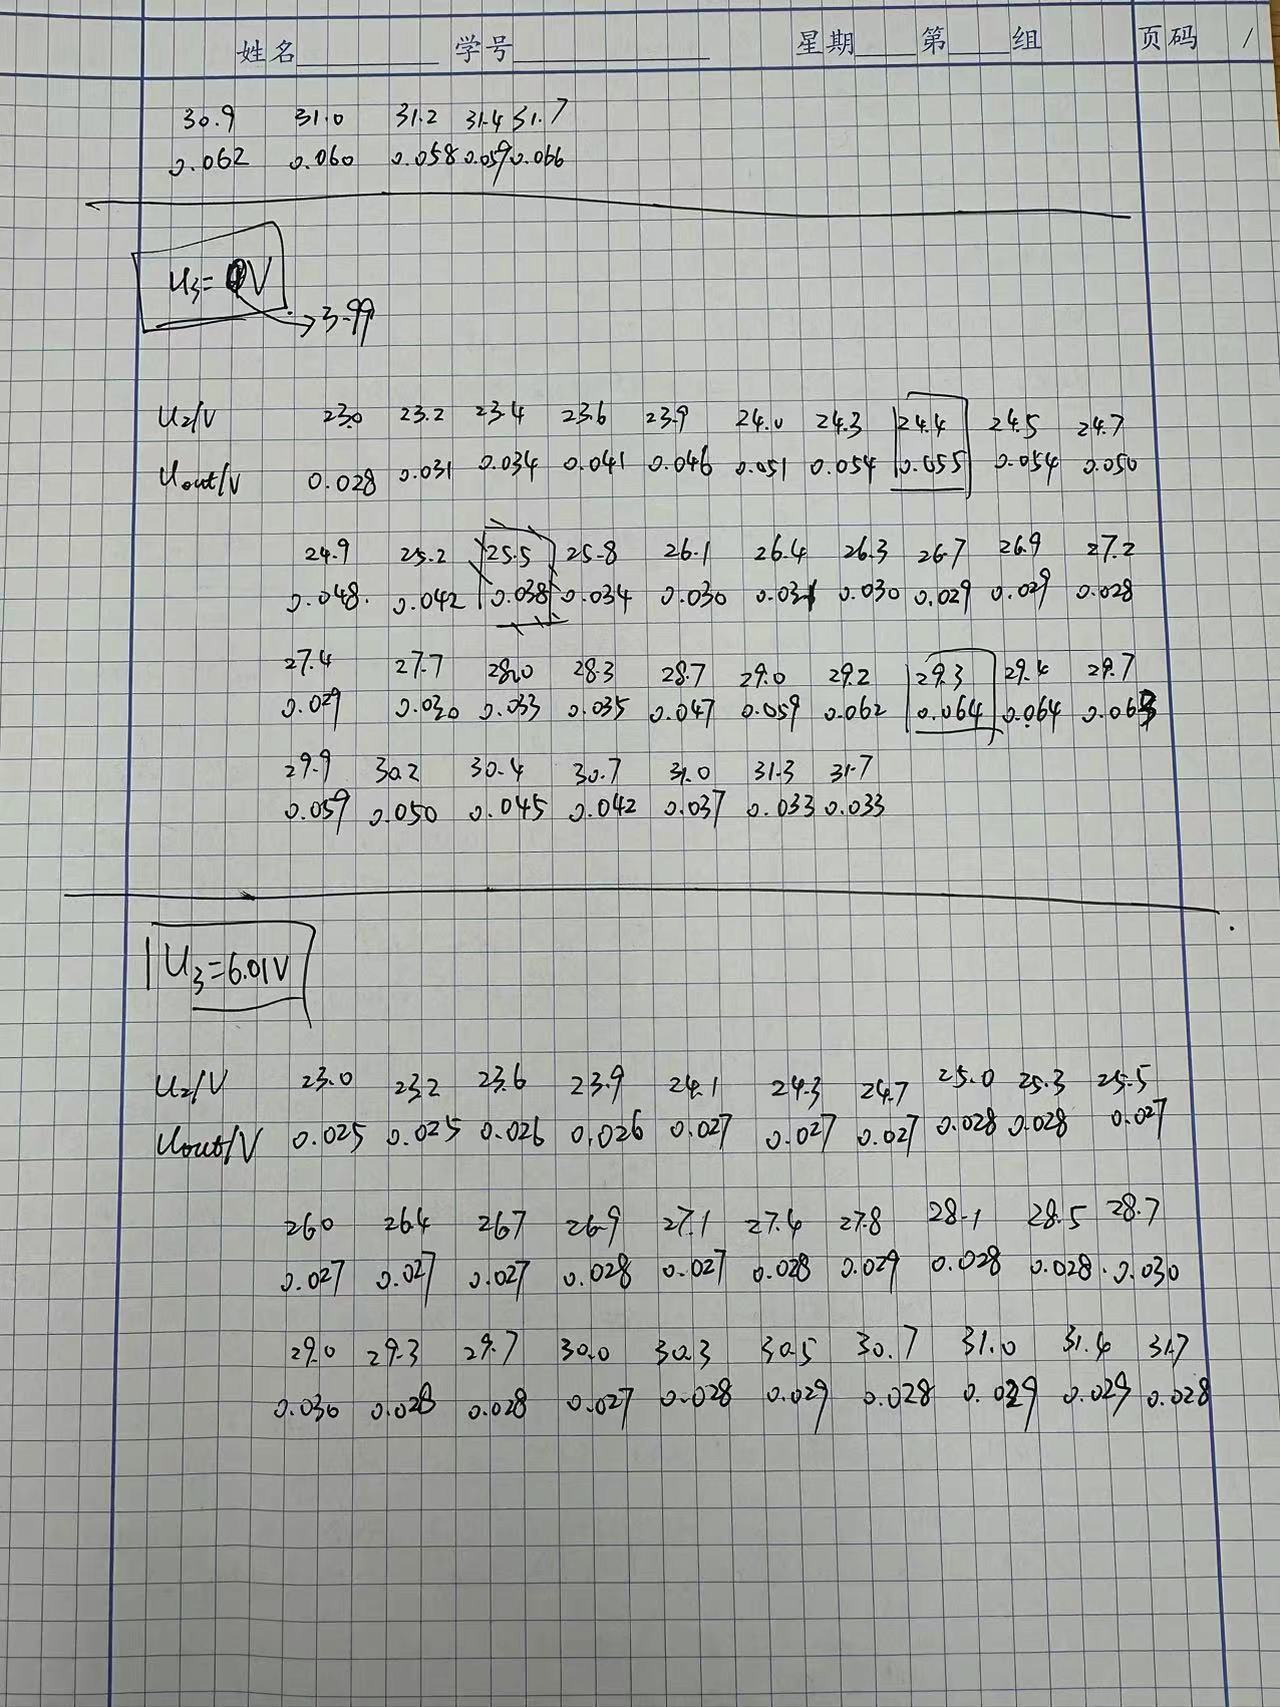 姓名 学号 星期 第 组 页码 /
30.9 31.0 31.2 31.4 31.7
0.062 0.060 0.058 0.059 0.066
U₃= V
3.99
U₂/V 23.0 23.2 23.4 23.6 23.9 24.0 24.3 24.4 24.5 24.7
Uout/V 0.028 0.031 0.034 0.041 0.046 0.051 0.054 0.055 0.054 0.050
24.9 25.2 25.5 25.8 26.1 26.4 26.3 26.7 26.9 27.2
0.048 0.042 0.038 0.034 0.030 0.031 0.030 0.029 0.029 0.028
27.4 27.7 28.0 28.3 28.7 29.0 29.2 29.3 29.4 29.7
0.029 0.030 0.033 0.035 0.047 0.059 0.062 0.064 0.064 0.063
29.9 30.2 30.4 30.7 31.0 31.3 31.7
0.059 0.050 0.045 0.042 0.037 0.033 0.033
U₃=6.01V
U₂/V 23.0 23.2 23.6 23.9 24.1 24.3 24.7 25.0 25.3 25.5
Uout/V 0.025 0.025 0.026 0.026 0.027 0.027 0.027 0.028 0.028 0.027
26.0 26.4 26.7 26.9 27.1 27.4 27.8 28.1 28.5 28.7
0.027 0.027 0.027 0.028 0.027 0.028 0.029 0.028 0.028 0.030
29.0 29.3 29.7 30.0 30.3 30.5 30.7 31.0 31.4 31.7
0.030 0.028 0.028 0.027 0.028 0.029 0.028 0.029 0.029 0.028